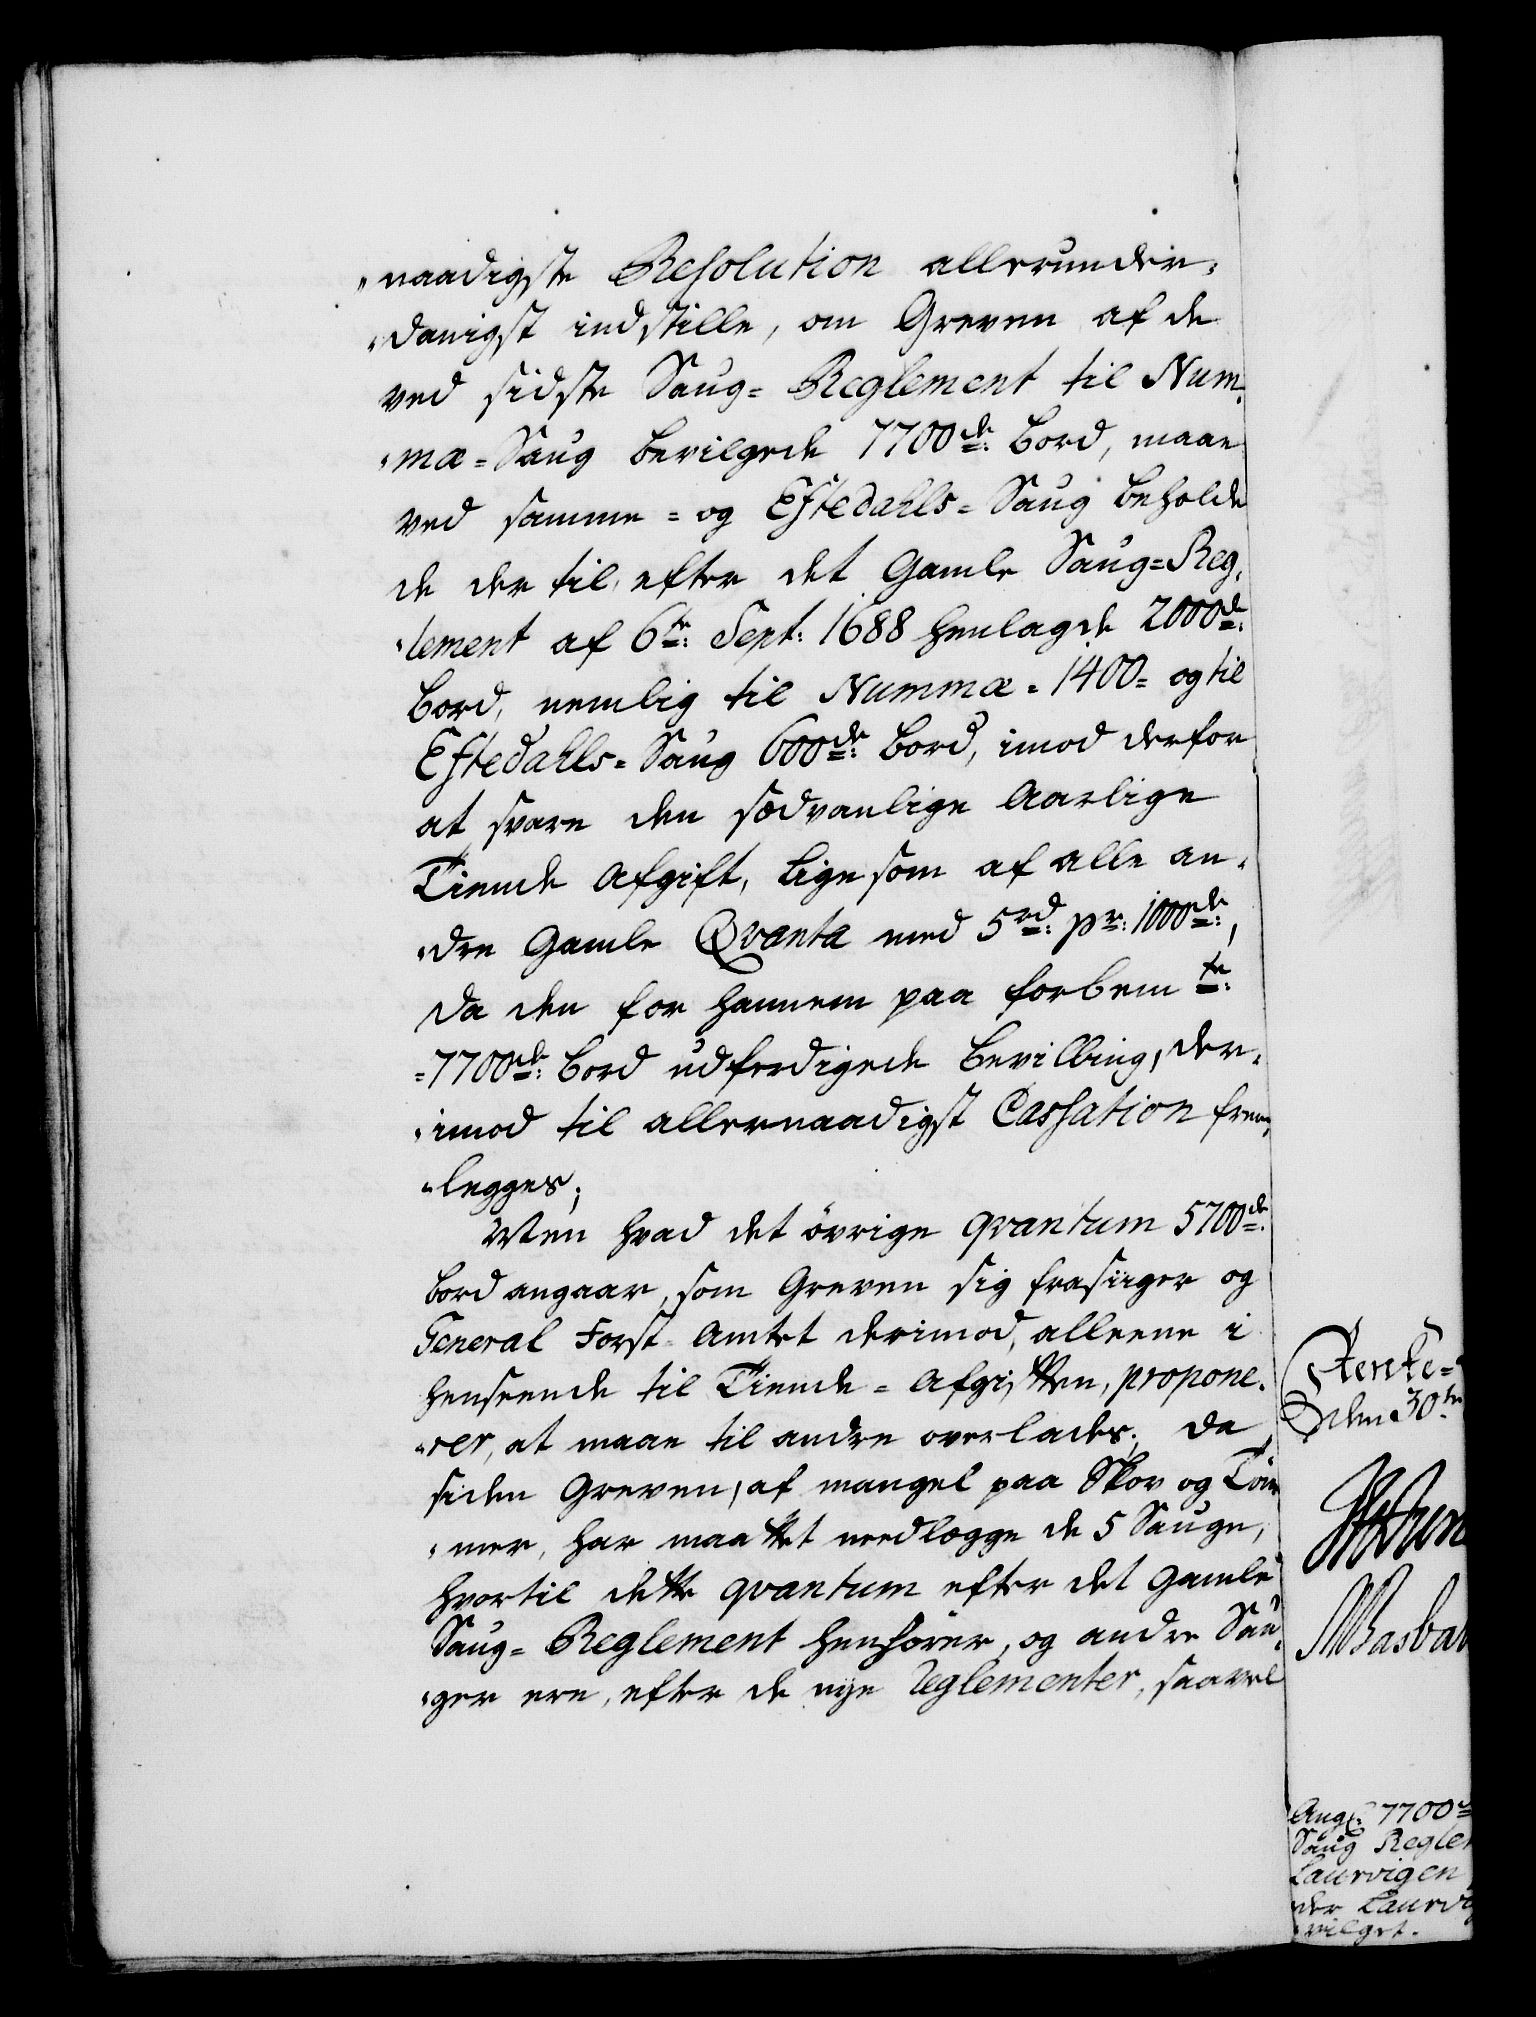 naadigste Resolution allerunder-
danigst indstille, om Greven af de
ved sidste Saug-Reglement til Num-
mæ-Saug bevilgede 7700de: bord, maae
ved samme- og Eftedahls-Saug beholde
de der til, efter det gamle Saug-Reg-
lement af 6te: Sept: 1688 henlagde 2000de:
bord, nemlig til Nummæ-1400- og til
Eftedahls-Saug 600de: bord, imod derfor
at svare den sædvanlige aarlige
Tiende Afgift, ligesom af alle an-
dre gamle Qvanta med 5rd: pr: 1000de:,
da den for hannem paa forbemte:
7700de: bord udferdigede Bevilling, der-
imod til allernaadigst Cassation frem-
legges;
Men hvad det övrige qvantum 5700de:
bord angaar, som Greven sig frasiiger og
General Forst-Amtet derimod, alleene i
henseende til Tiende-Afgiften, propone-
rer, at maae til andre overlades; da
siden Greven, af mangel paa Skov og Töm-
mer, har maattet nedlægge de 5 Sauge,
hvortil dette qvantum efter det gamle
Saug-Reglement henhörer, og andre Sau-
ger ere, efter de nye Reglementer, saavel
Rente-
den 30te
Ang: 7700de
Saug Reglem
Laurvigen
der Laurvig
vilget.